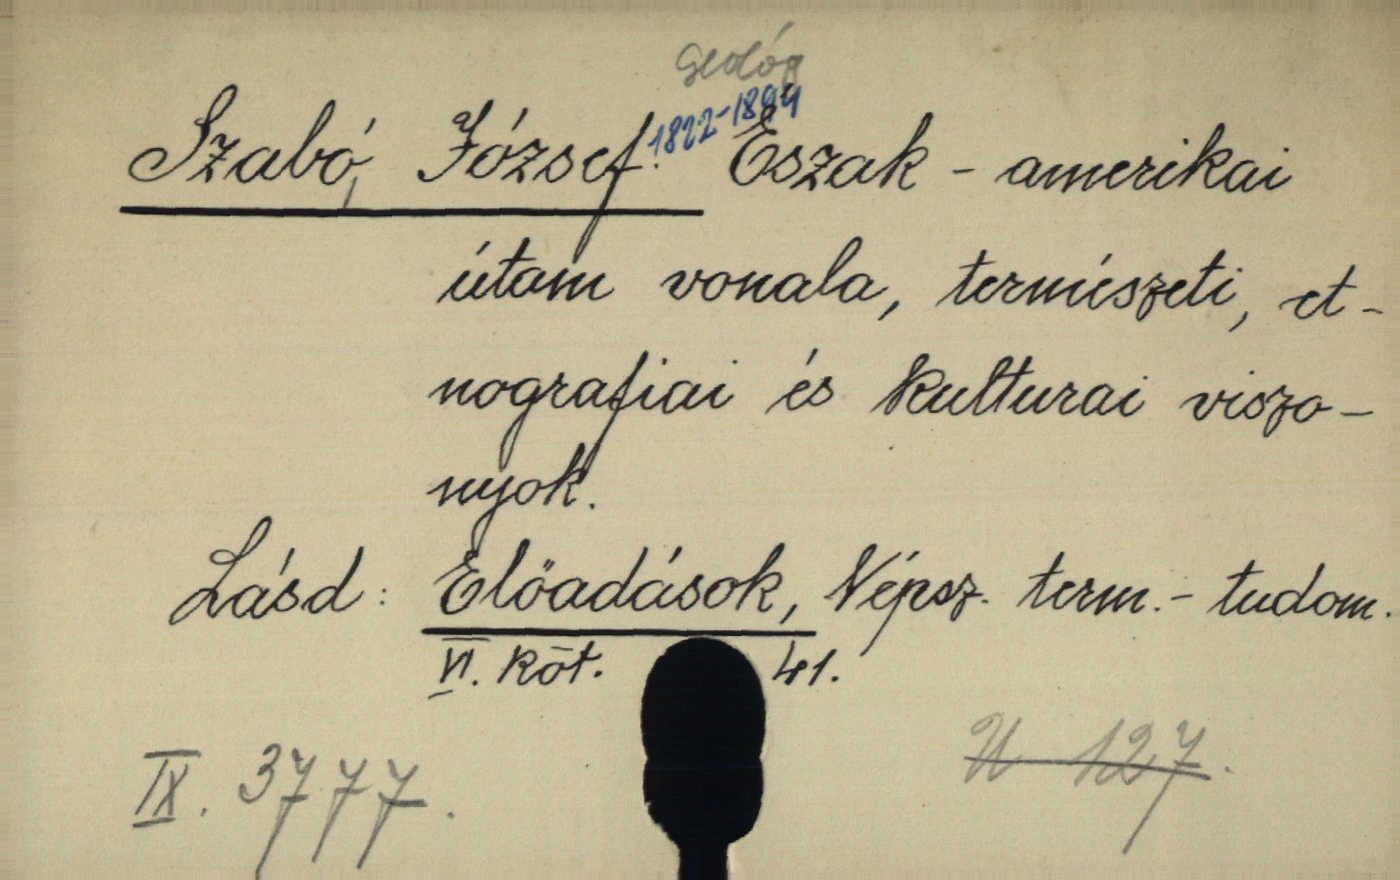 Geológ
1822-1894
Szabó, József. Észak-amerikai
útam vonala, természeti, et-
nografiai és kulturai viszo-
nyok.
Lásd: Előadások, Népsz. term.-tudom.
VI. köt. 41.
IX. 3777.
U 127.